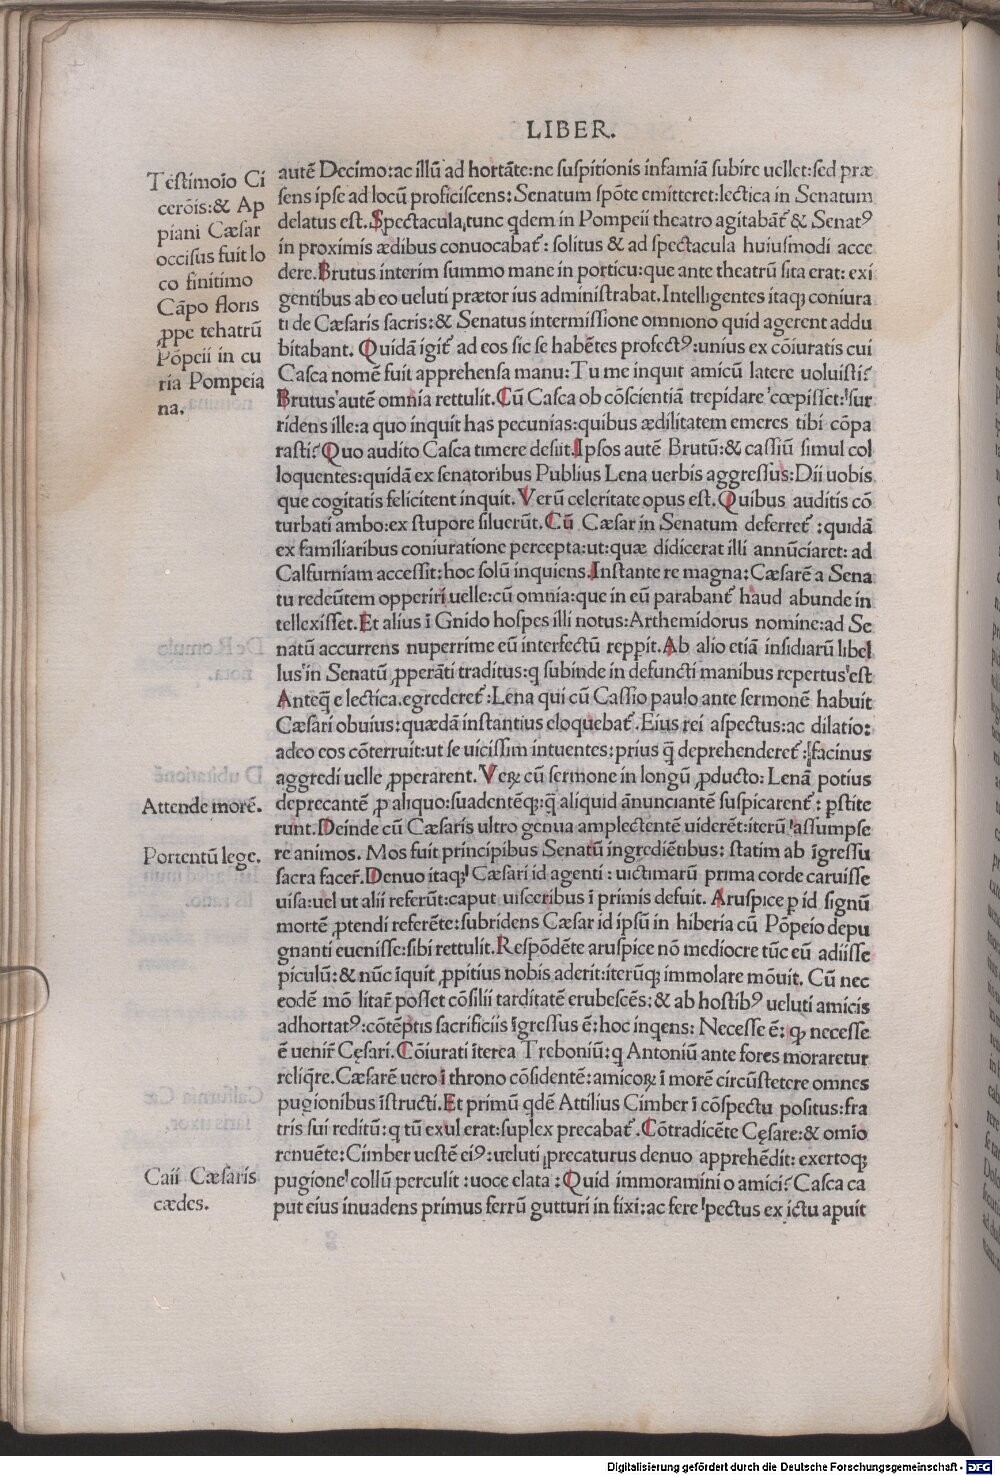 LIBER.
Testimoio Ci
cerōis:& Ap
piani Cæsar
occisus fuit lo
co finitimo
Cāpo floris
ꝓpe tehatrū
Pōpeii in cu
ria Pompeia
na.
autē Decimo:ac illū ad hortāte:ne suspitionis infamiā subire uellet:sed præ
sens ipse ad locū proficiscens:Senatum spōte emitteret:lectica in Senatum
delatus est.Spectacula,tunc qdem in Pompeii theatro agitabāt᷑ & Senatꝰ
in proximis ædibus conuocabat᷑: solitus & ad spectacula huiusmodi acce
dere.Brutus interim summo mane in porticu:que ante theatrū sita erat: exi
gentibus ab eo ueluti prætor ius administrabat.Intelligentes itaqꝫ coniura
ti de Cæsaris sacris:& Senatus intermissione omniono quid agerent addu
bitabant. Quidā igit᷑ ad eos sic se habētes profectꝰ:unius ex cōiuratis cui
Casca nomē fuit apprehensa manu:Tu me inquit amicū latere uoluisti?
Brutus autē omnia rettulit.Cū Casca ob cōscientiā trepidare cœpisset:sur
ridens ille:a quo inquit has pecunias:quibus ædilitatem emeres tibi cōpa
rasti?Quo audito Casca timere desiit.Ipsos autē Brutū:& cassiū simul col
loquentes:quidā ex senatoribus Publius Lena uerbis aggressus:Dii uobis
que cogitatis felicitent inquit.Verū celeritate opus est.Quibus auditis cō
turbati ambo:ex stupore siluerūt.Cū Cæsar in Senatum deferret᷑:quidā
ex familiaribus coniuratione percepta:ut:quæ didicerat illi annūciaret: ad
Calfurniam accessit:hoc solū inquiens.Instante re magna:Cæsarē a Sena
tu redeūtem opperiri uelle:cū omnia:que in eū parabant᷑ haud abunde in
tellexisset.Et alius ī Gnido hospes illi notus:Arthemidorus nomine:ad Se
natū accurrens nuperrime eū interfectū repꝑit.Ab alio etiā insidiarū libel
lus in Senatū ꝓperāti traditus:q subinde in defuncti manibus repertus est
Anteq̄ e lectica.egrederet᷑:Lena qui cū Cassio paulo ante sermonē habuit
Cæsari obuius:quædā instantius eloquebat᷑.Eius rei aspectus:ac dilatio:
adeo eos cōterruit:ut se uicissim intuentes:prius q̄ deprehenderet᷑:facinus
aggredi uelle ꝓperarent.Veꝝ cū sermone in longū ꝓducto:Lenā potius
Attende morē.
deprecantē ꝑ aliquo:suadentēqꝫ:q̄ aliquid ānunciantē suspicarent᷑: ꝑstite
runt.Deinde cū Cæsaris ultro genua amplectentē uiderēt:iterū assumpse
Portentū lege.
re animos. Mos fuit principibus Senatū ingrediētibus: statim ab īgressu
sacra facer̄.Denuo itaqꝫ Cæsari id agenti: uictimarū prima corde caruisse
uisa:uel ut alii referūt:caput uisceribus ī primis defuit. Aruspice ꝑ id signū
mortē ꝓtendi referēte:subridens Cæsar id ipsū in hiberia cū Pōpeio depu
gnanti euenisse:sibi rettulit.Respōdēte aruspice nō mediocre tūc eū adiisse
piculū:& nūc īquit ꝓpitius nobis aderit:iterūqꝫ immolare mōuit. Cū nec
eodē mō litar̄ posset cōsilii tarditatē erubescēs:& ab hostibꝰ ueluti amicis
adhortatꝰ:cōtēptis sacrificiis īgressus ē:hoc inqens: Necesse ē: qꝫ necesse
ē uenir̄ Cęsari.Cōiurati īterea Treboniū:q Antoniū ante fores moraretur
reliq̄re.Cæsarē uero ī throno cōsidentē:amicoꝝ ī morē circūstetere omnes
pugionibus īstructi.Et primū qdē Attilius Cimber ī cōspectu positus:fra
tris sui reditū:q tū exul erat:suplex precabat᷑.Cōtradicēte Cęsare:& omīo
renuēte:Cimber uestē eiꝰ:ueluti ꝓrecaturus denuo apprehēdit: exertoqꝫ
Caii Cæsaris
cædes.
pugione collū perculit :uoce elata:Quid immoramini o amici?Casca ca
put eius inuadens primus ferrū gutturi in fixi:ac fere pectus ex ictu apuit
Digitalisierung gefördert durch die Deutsche Forschungsgemeinschaft - DFG